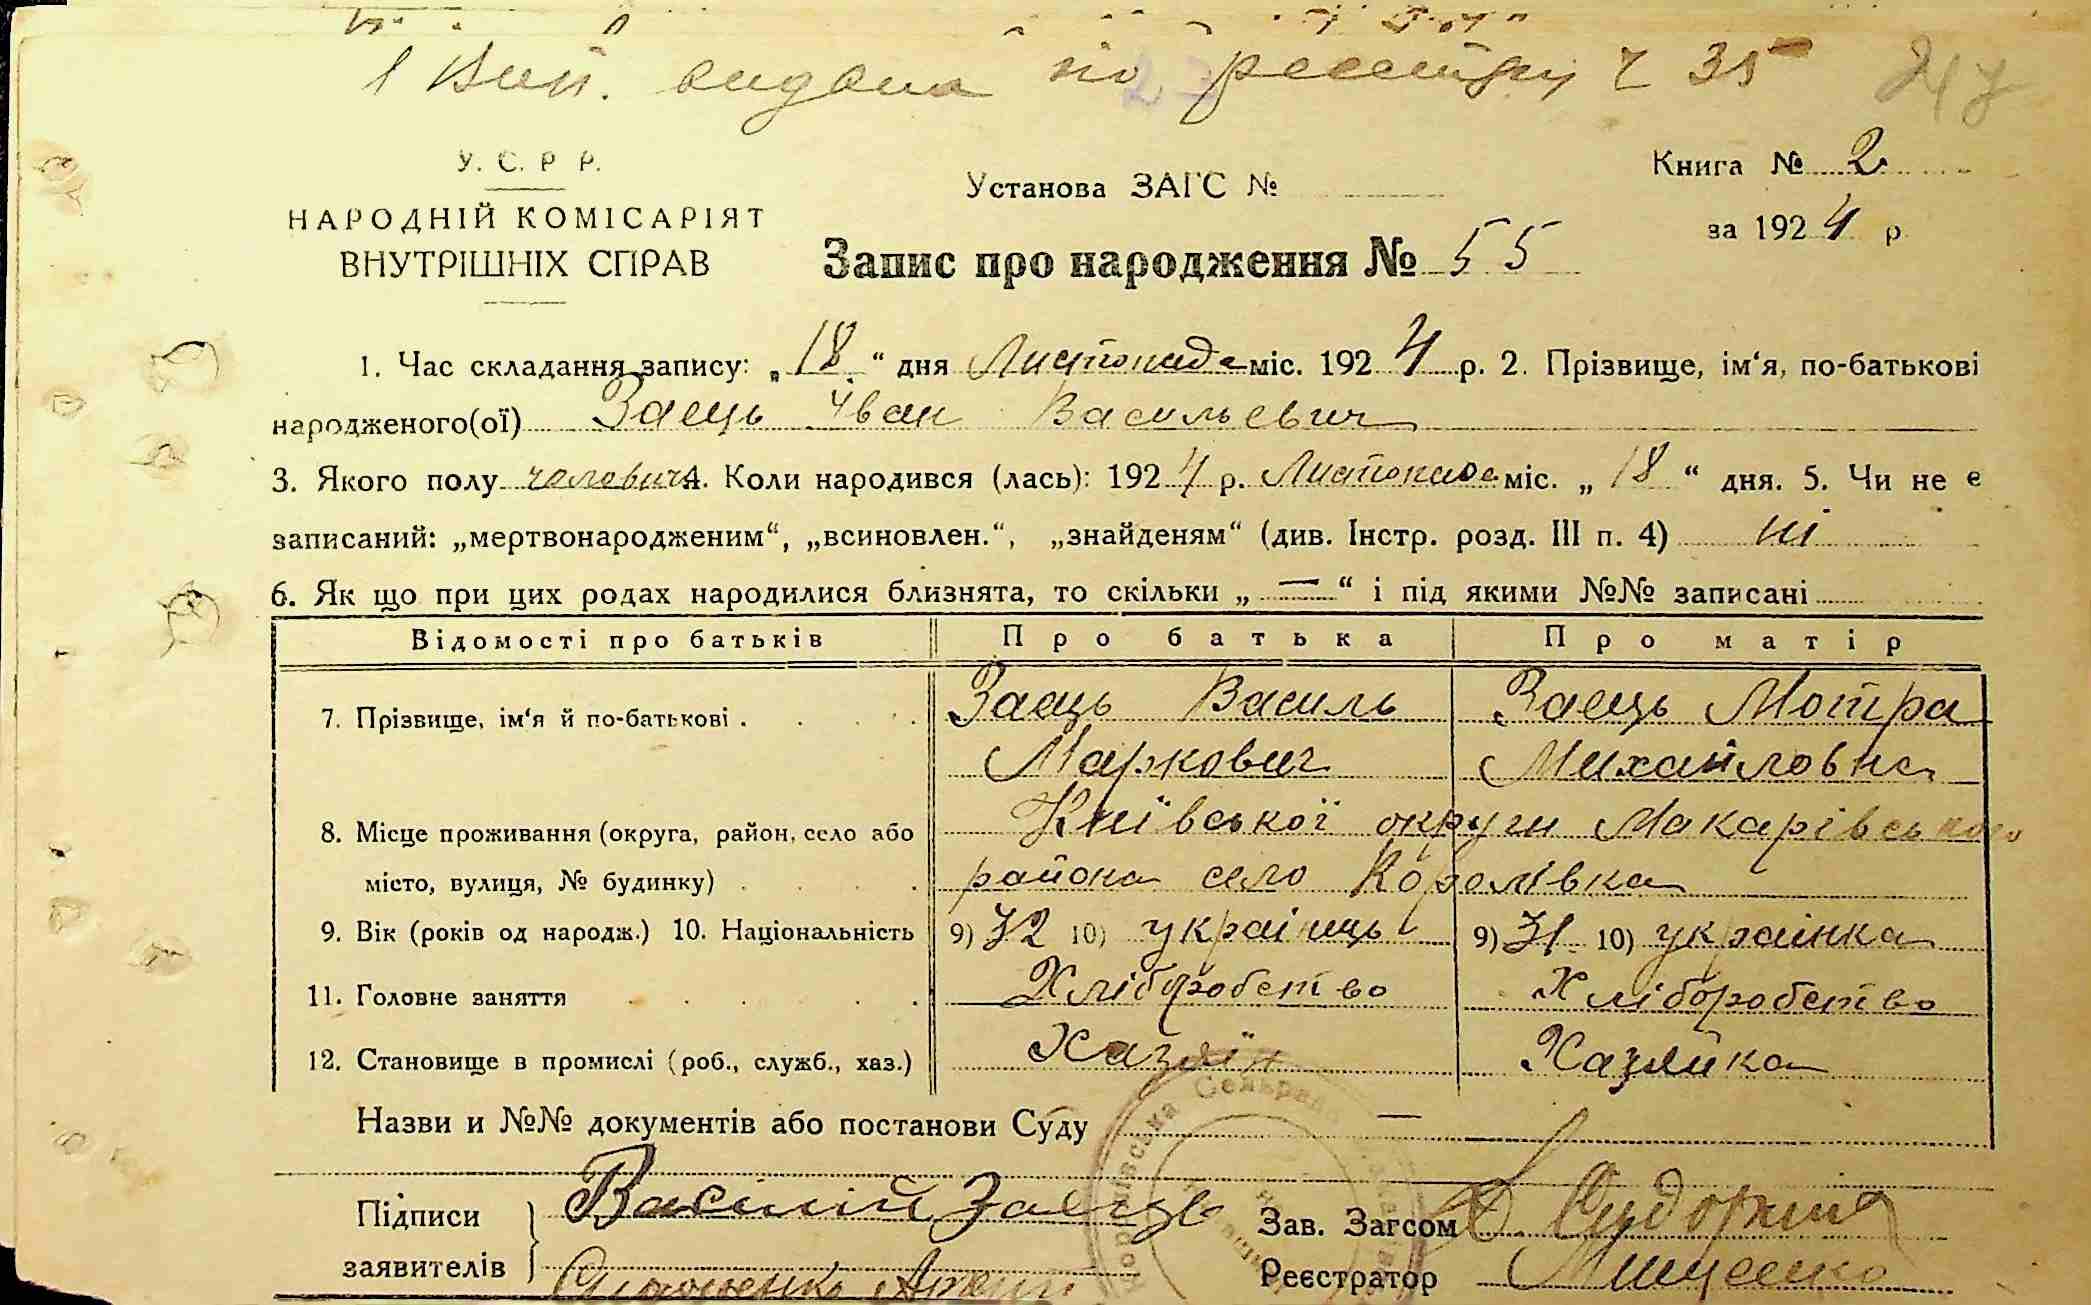 1 Вип. видана по реєстру Ч 35
У. С. Р. Р.
НАРОДНІЙ КОМІСАРІЯТ
ВНУТРІШНІХ СПРАВ
Установа ЗАГС №
Книга № 2
за 1924 р.
Запис про народження № 55
1. Час складання запису: „18“ дня Листопада міс. 1924 р. 2. Прізвище, ім‘я, по-батькові
народженого(ої) Заєць Іван Васильевич
3. Якого полу чоловіч. 4. Коли народився (лась): 1924 р. Листопада міс. „18“ дня. 5. Чи не є
записаний: „мертвонародженим“, „всиновлен.“, „знайденям“ (див. Інстр. розд. III п. 4) ні
6. Як що при цих родах народилися близнята, то скільки „—“ і під якими №№ записані
Відомості про батьків Про батька Про матір
7. Прізвище, ім‘я й по-батькові . Заєць Василь Заєць Мотра
Маркович Михайловна
8. Місце проживання (округа, район, село або Київської округи Макарівського
місто, вулиця, № будинку) района село Королівка
9. Вік (років од народж.) 10. Національність 9) 32 10) українць 9) 31 10) українка
11. Головне заняття Хліборобство Хліборобство
12. Становище в промислі (роб., служб., хаз.) Хазяїн Хазяйка
Назви и №№ документів або постанови Суду —
Підписи Василій Заєць Зав. Загсом
заявителів Реєстратор Мищенко
Сельрада